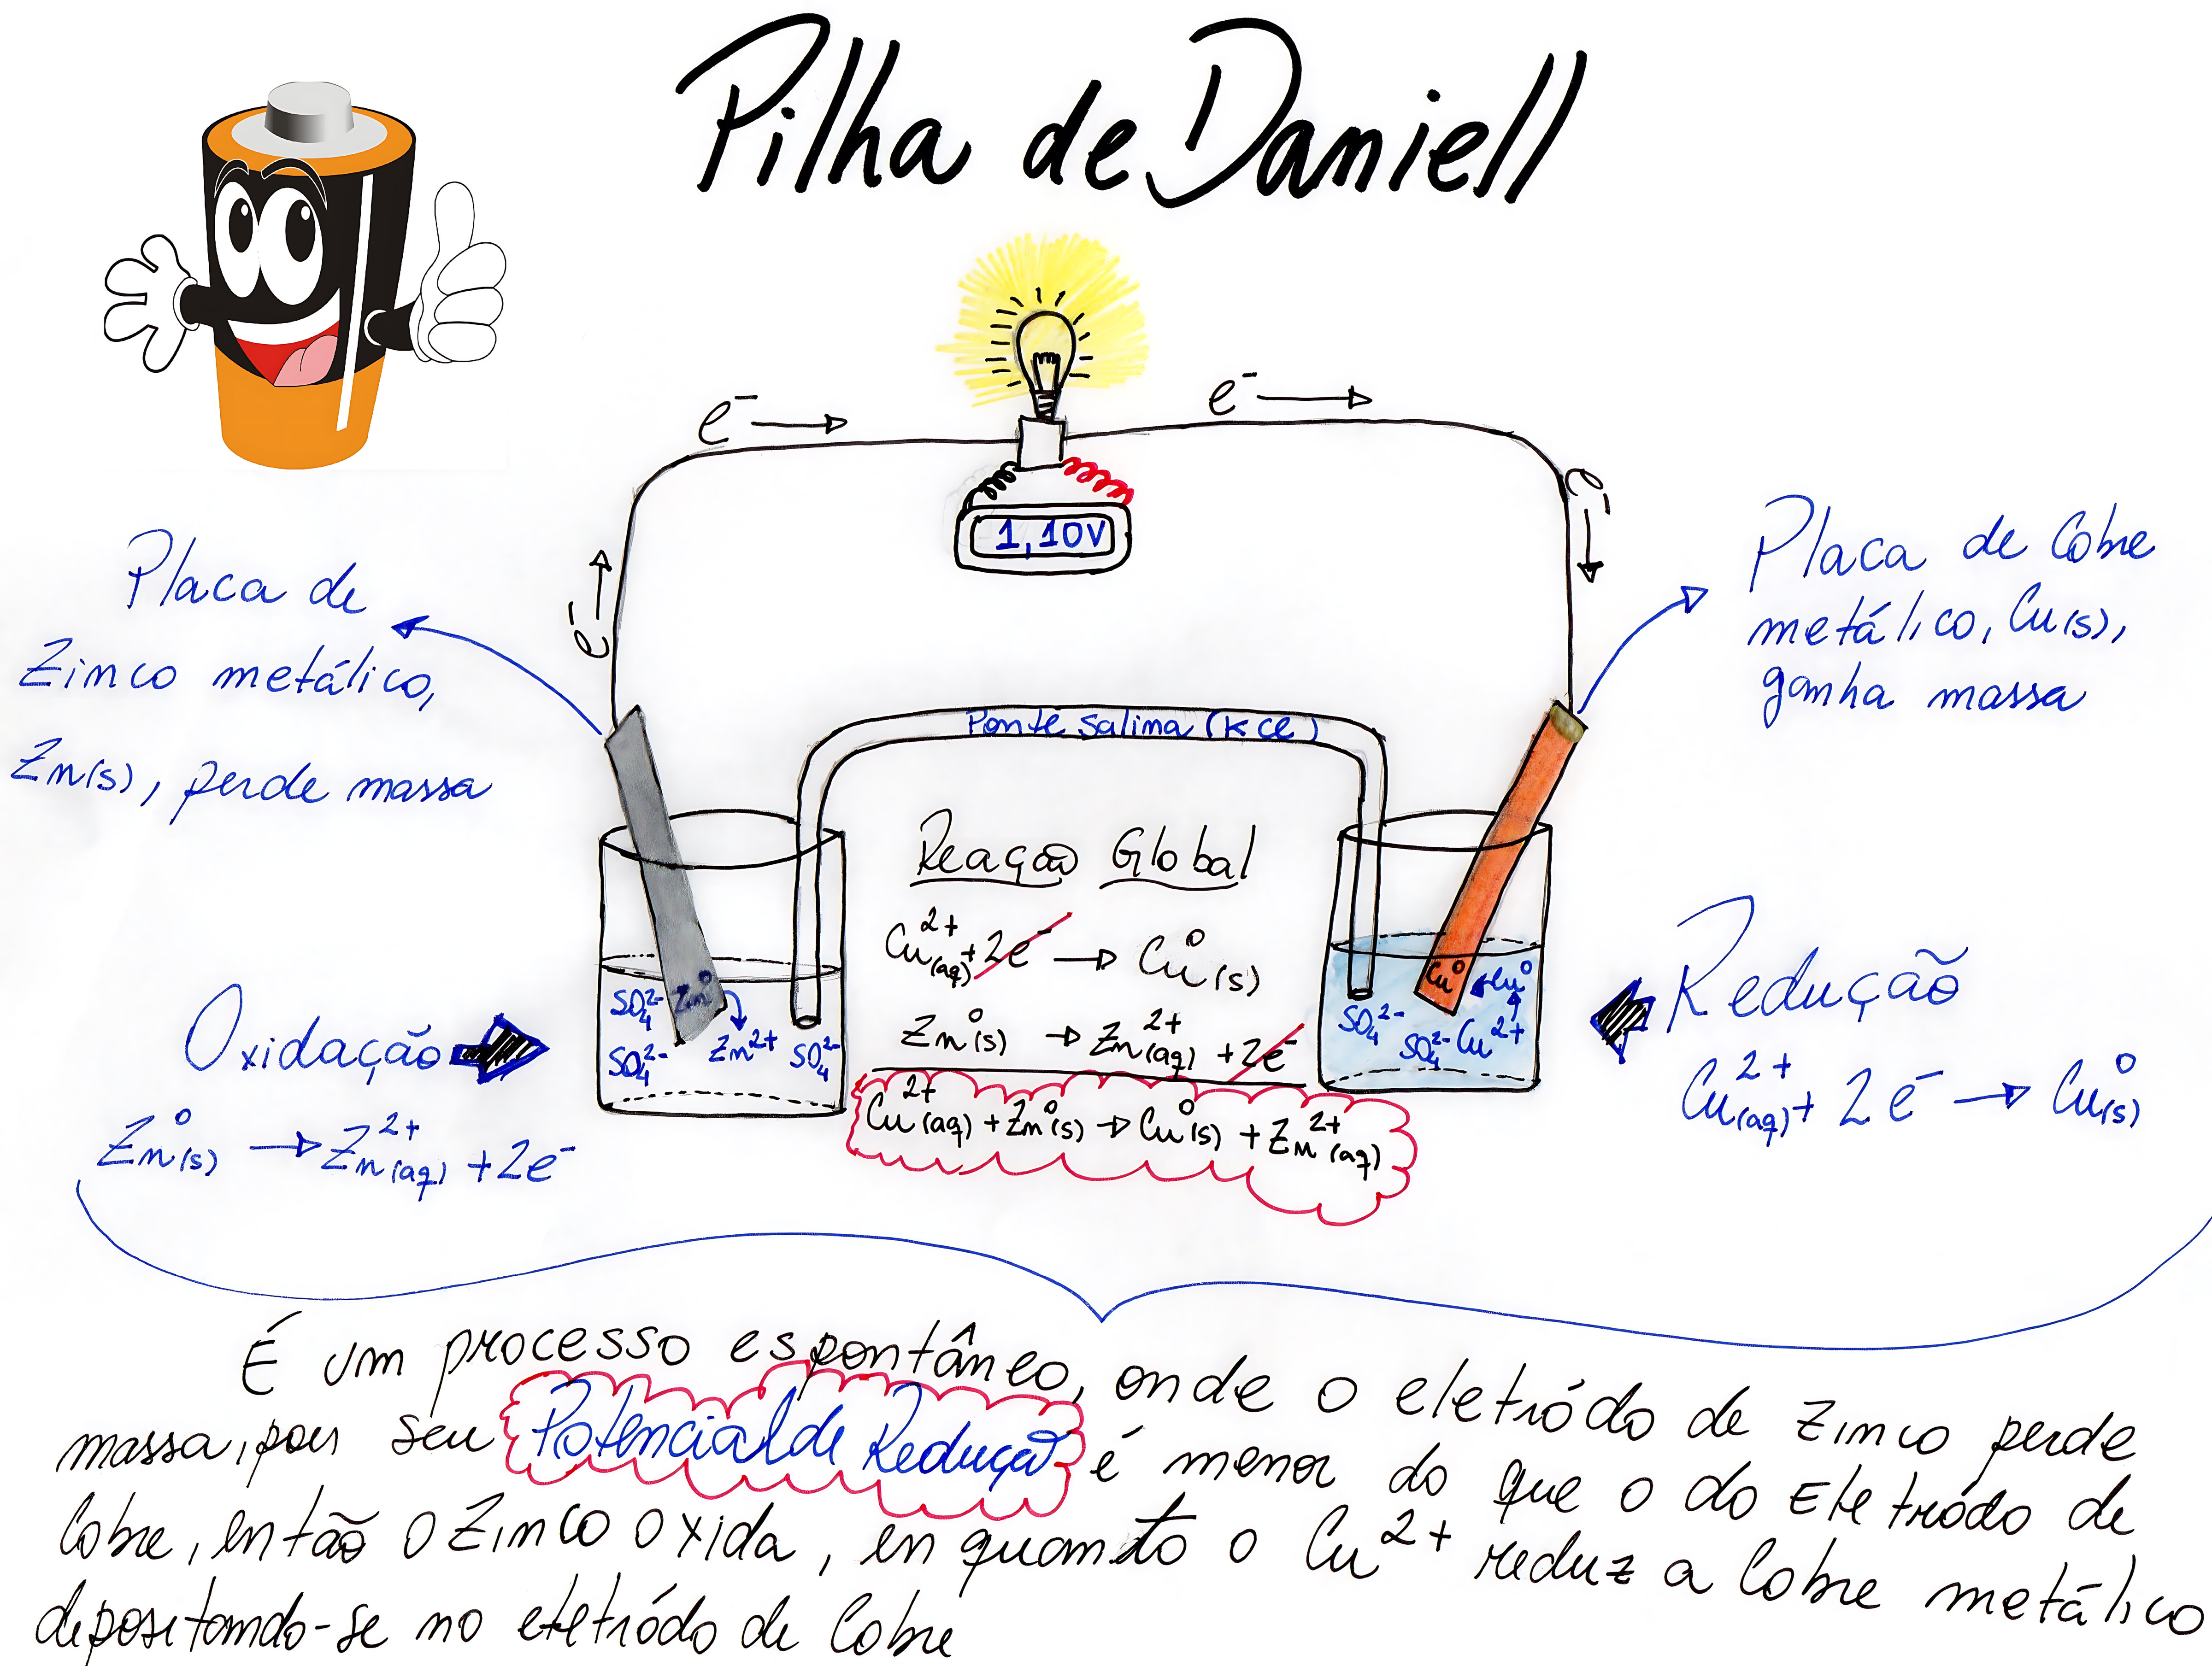 Pilha de Daniell
e⁻ →
e⁻ →
e⁻ →
e⁻ →
1,10V
Placa de
Zinco metálico,
Zn(s), perde massa
Placa de Cobre
metálico, Cu(s),
ganha massa
Ponte Salina (KCl)
Reação Global
Cu²⁺(aq) + 2e⁻ → Cu⁰(s)
Zn⁰(s) → Zn²⁺(aq) + 2e⁻
Cu²⁺(aq) + Zn⁰(s) → Cu⁰(s) + Zn²⁺(aq)
Zn⁰
SO₄²⁻
SO₄²⁻
Zn²⁺
SO₄²⁻
Cu⁰
Cu⁰
SO₄²⁻
SO₄²⁻
Cu²⁺
Oxidação
Zn⁰(s) → Zn²⁺(aq) + 2e⁻
Redução
Cu²⁺(aq) + 2e⁻ → Cu⁰(s)
É um processo espontâneo, onde o eletródo de zinco perde
massa, pois seu Potencial de Redução é menor do que o do Eletródo de
Cobre, então o Zinco oxida, enquanto o Cu²⁺ reduz a Cobre metálico
depositando-se no eletródo de Cobre